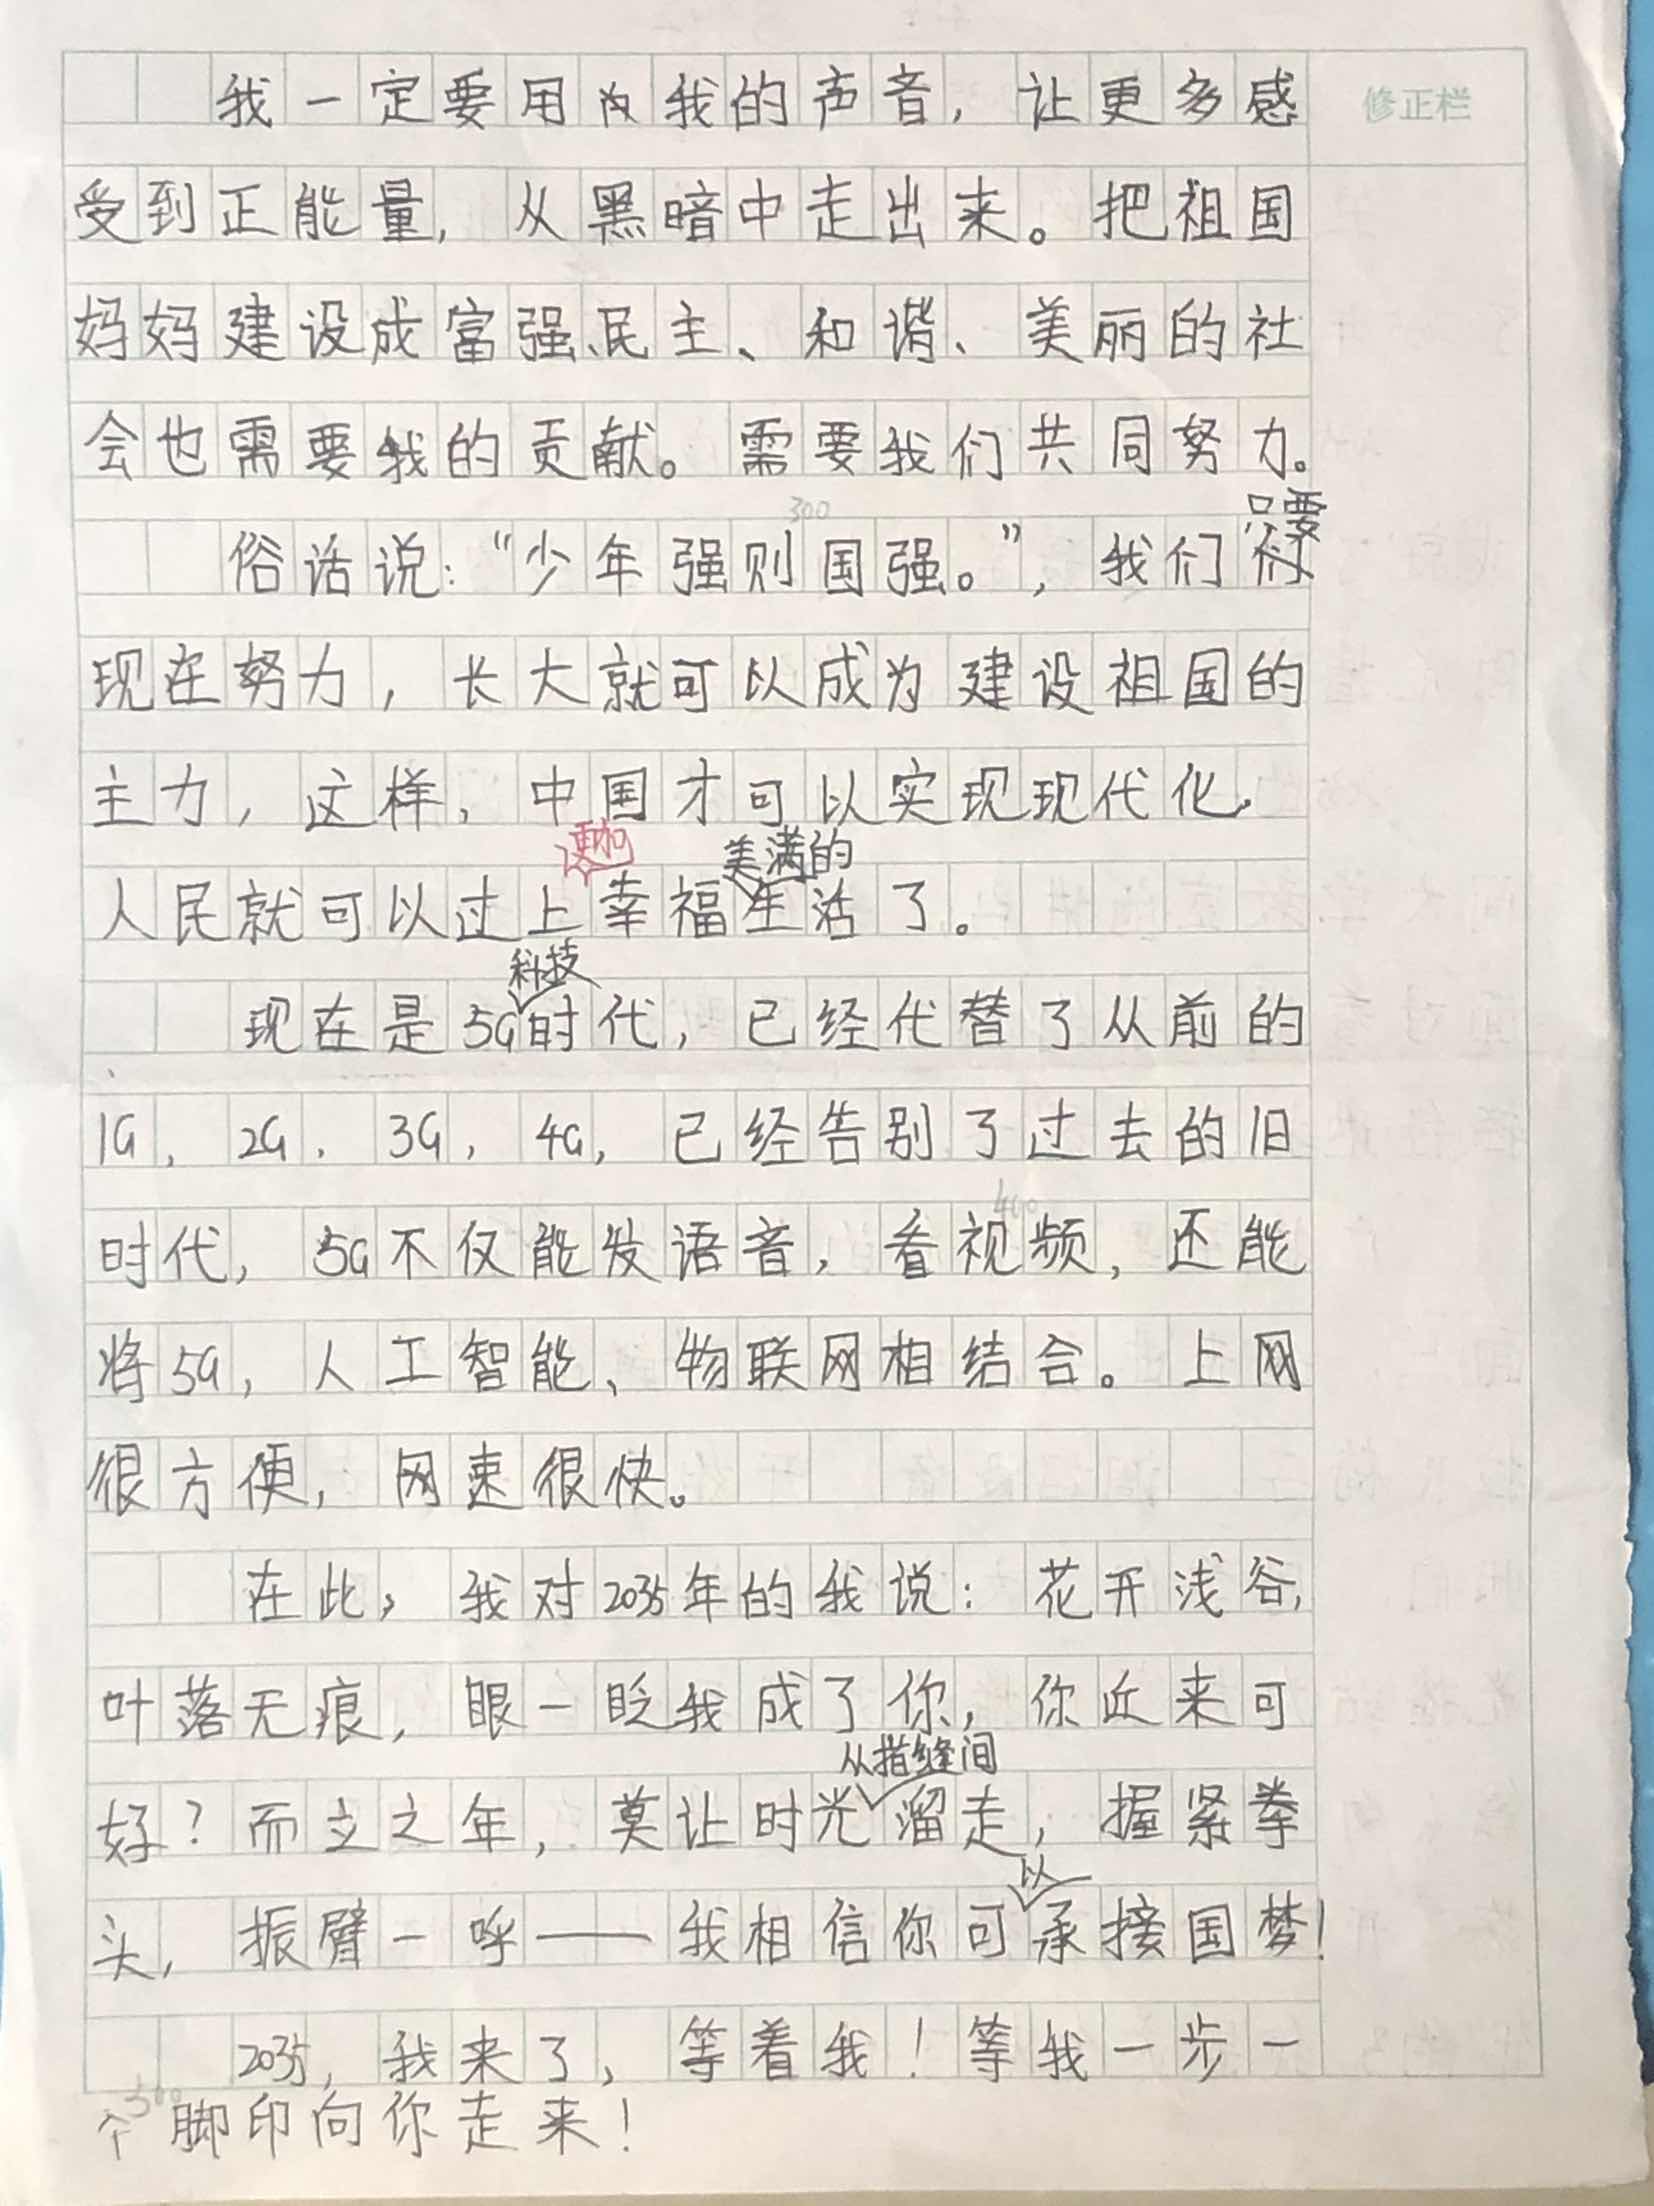 我一定要用我的声音，让更多感
修正栏
受到正能量，从黑暗中走出来。把祖国
妈妈建设成富强、民主、和谐、美丽的社
会也需要我的贡献。需要我们共同努力。
300
只要
俗话说：“少年强则国强。”，我们
现在努力，长大就可以成为建设祖国的
主力，这样，中国才可以实现现代化，
更加
美满的
人民就可以过上幸福生活了。
科技
现在是5G时代，已经代替了从前的
1G、2G、3G，4G，已经告别了过去的旧
400
时代，5G不仅能发语音，看视频，还能
将5G，人工智能、物联网相结合。上网
很方便，网速很快。
在此，我对2035年的我说：花开浅谷，
叶落无痕，眼一眨我成了你，你近来可
从指缝间
好？而立之年，莫让时光溜走，握紧拳
以
头，振臂一呼——我相信你可承接国梦！
2035，我来了，等着我！等我一步一
500
个脚印向你走来！